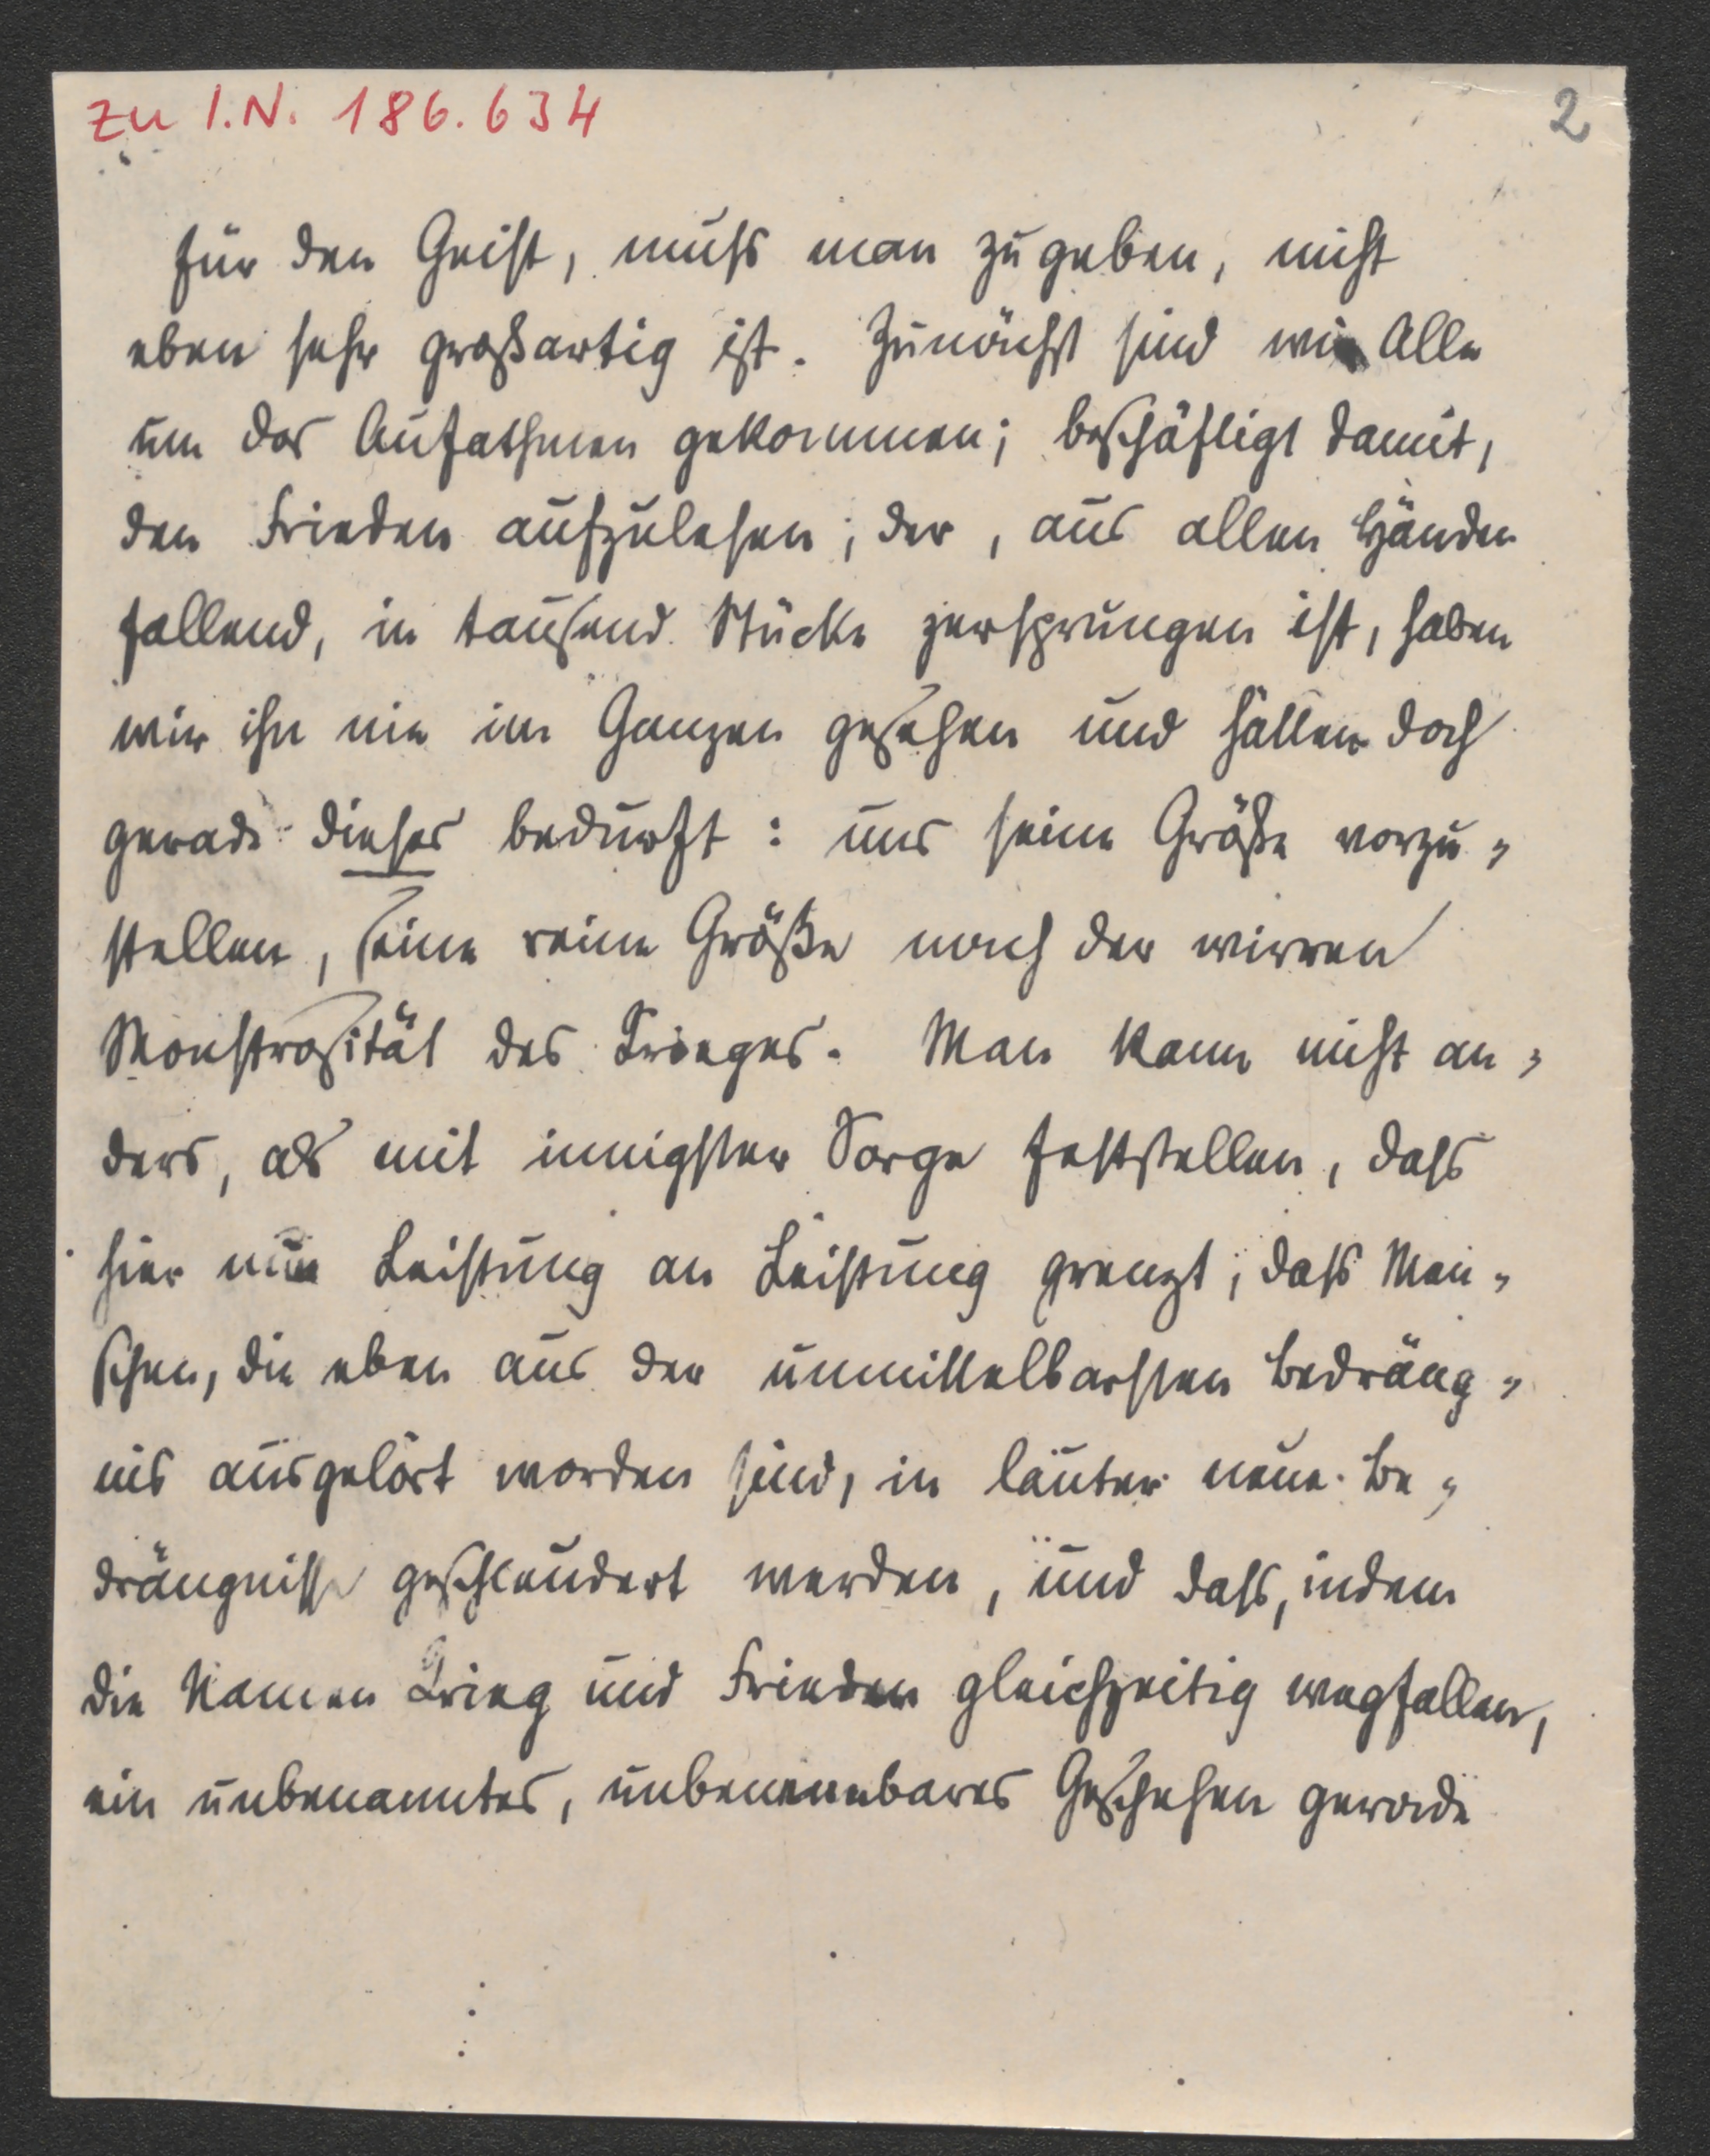 zu I.N. 186.634
2
für den Geist, muſs man zugeben, nicht
eben sehr großartig ist. Zunächst sind wir Alle
um das Aufathmen gekommen; beschäftigt damit,
den Frieden aufzulesen, der, aus allen Händen
fallend, in tausend Stücke zersprungen ist, haben
wir ihn nie im Ganzen gesehen und hätten doch
gerade dieses bedurft: uns seine Größe vorzu-
stellen, seine reine Größe nach der wirren
Monstrosität des Krieges. Man kann nicht an-
ders, als mit innigster Sorge feststellen, daſs
hier nun Leistung an Leistung grenzt, daſs Men-
schen, die eben aus der unmittelbarsten Bedräng-
nis ausgelöst worden sind, in lauter neue Be-
drängnisse geschleudert werden, und daſs, indem
die Namen Krieg und Frieden gleichzeitig wegfallen,
ein unbenanntes, unbenennbares Geschehen gerade